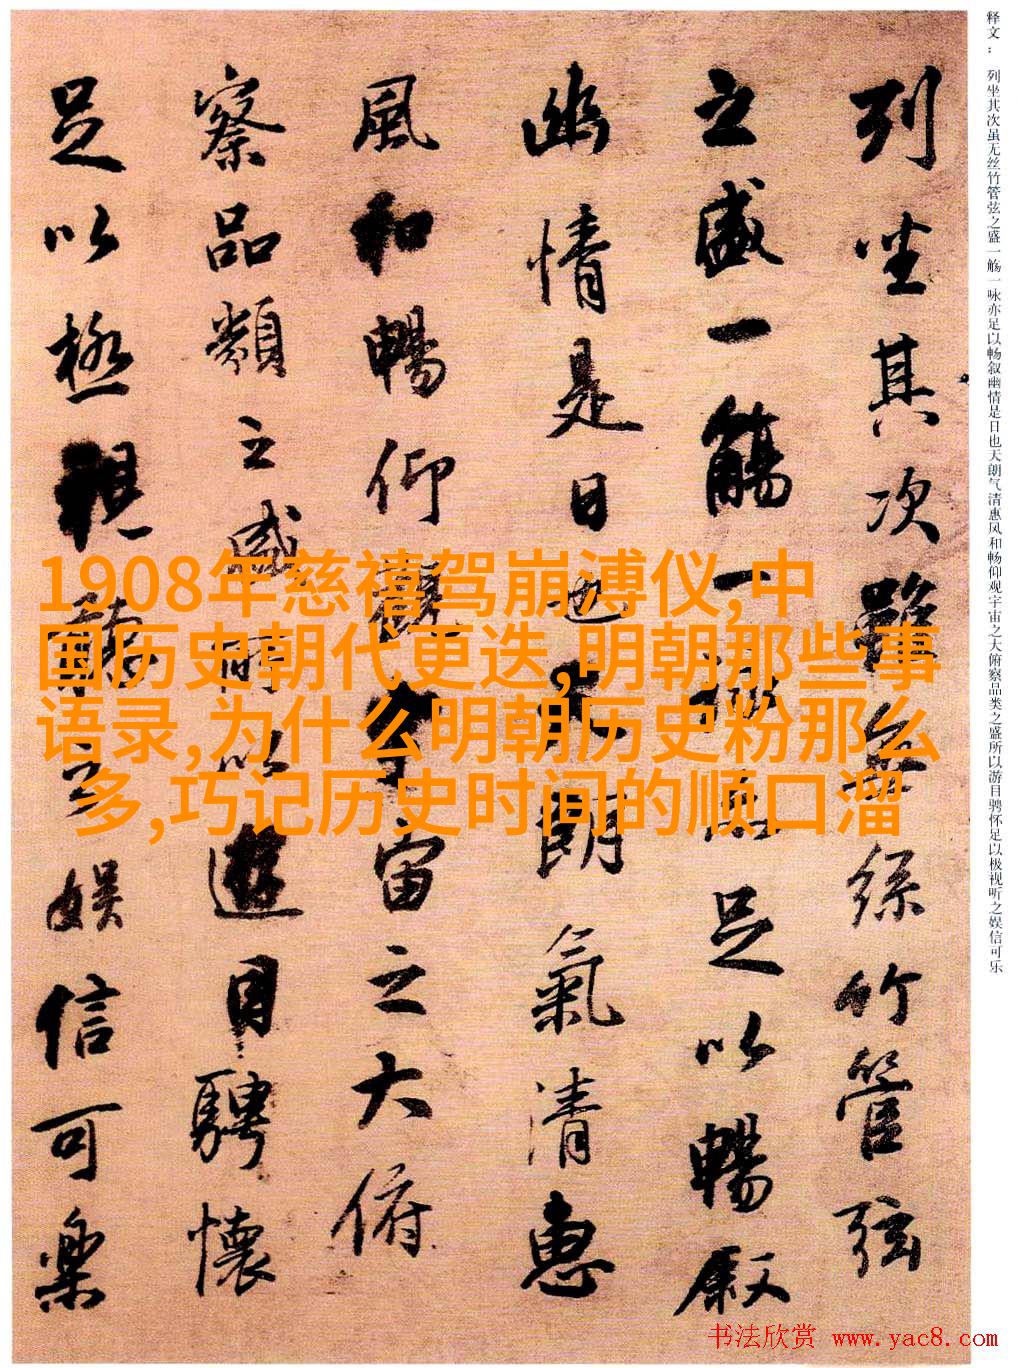 释文：列坐其次虽无丝竹管弦之盛一觞一咏亦足以畅叙幽情是日也天朗气清惠风和畅仰观宇宙之大俯察品类之盛所以游目骋怀足以极视听之娱信可乐
列坐其次雖無絲竹管弦
之盛一觴一詠亦足以暢叙
幽情是日也天朗氣清惠
風和暢仰觀宇宙之大俯
察品類之盛所以遊目騁懷
足以極視聽之娱信可樂
1908年慈禧驾崩溥仪,中
国历史朝代更迭,明朝那些事
语录,为什么明朝历史粉那么
多,巧记历史时间的顺口溜
书法欣赏 www.yac8.com